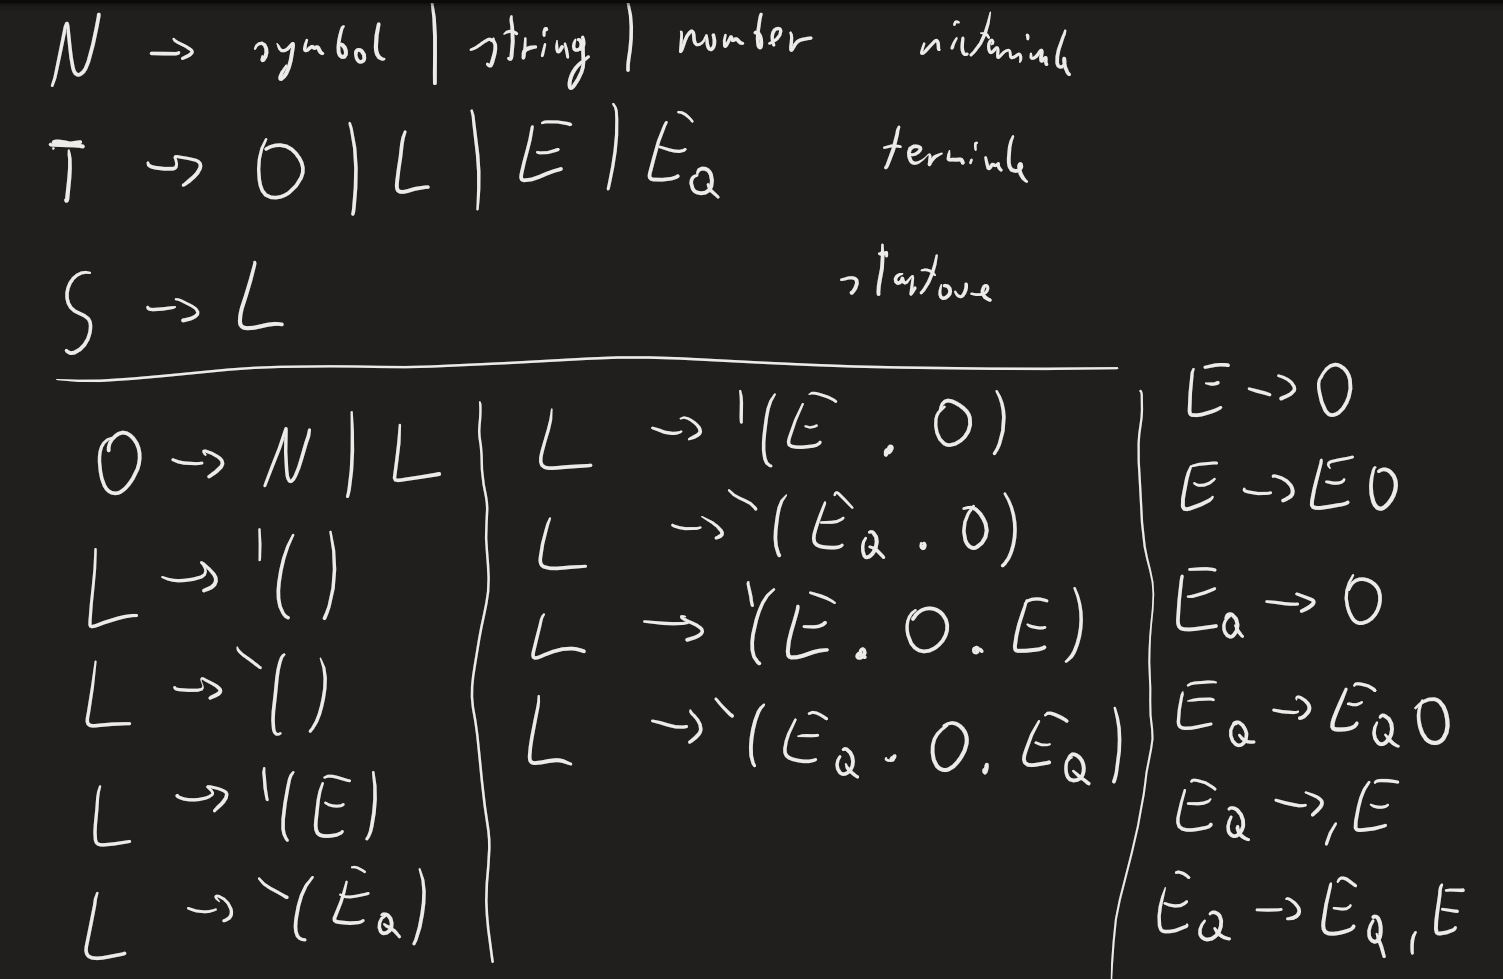 N → symbol | string | number
T → O | L | E | E_Q
S → L startove
O → N | L
L → '()
L → `()
L → '(E)
L → `(E_Q)
L → '(E . O)
L → `(E_Q . O)
L → '(E . O . E)
L → `(E_Q . O . E_Q)
E → O
E → E O
E_Q → O
E_Q → E_Q O
E_Q → ,E
E_Q → E_Q ,E